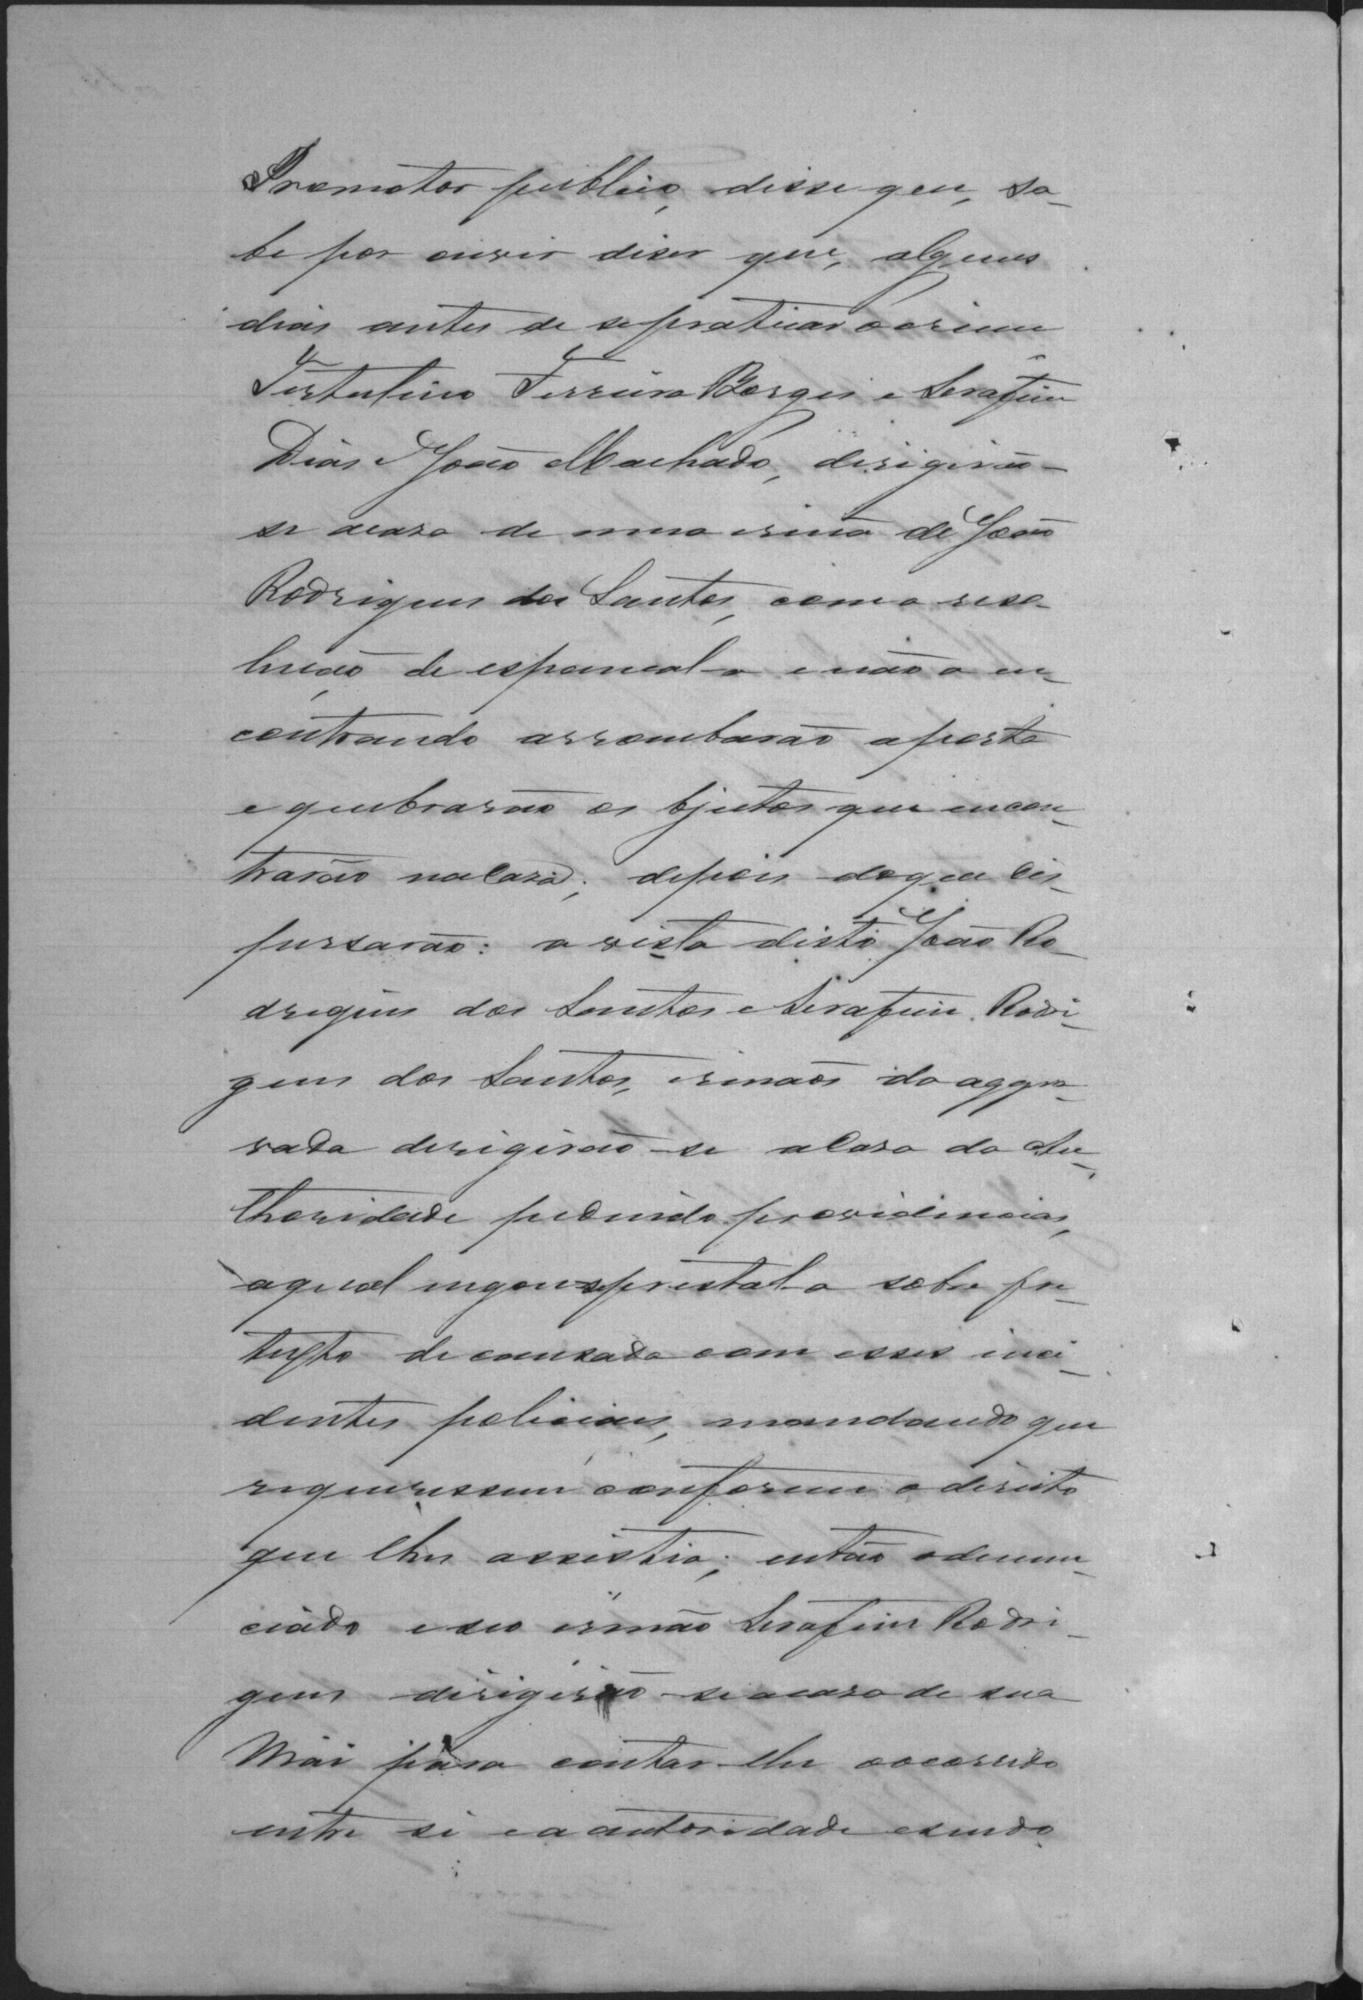 Promotor publico, disse que, sa-
be por ouvir diser que, alguns
dias antes de se praticar o crime
Tertulino Ferreira Borges e Serafim
Dias e João Machado, dirigirão-
se acasa de uma irmã de João
Rodrigues dos Santos, com a reso-
lução de espancal-a e não a en-
contrando arrombarão aporta
e quebrarão os objectos que encon-
trarão na Casa; depois do que dis-
persarão: a vista disto João Ro-
drigues dos Santos e Serafim Rodri-
gues dos Santos, irmãos da aggra-
vada derigirão-se a Casa da Au-
thoridade pedindo providencias,
aqual negou-se prestal-a sobre pre-
texto de cansada com esses inci-
dentes policiais, mandando que
requeressem conforme o direito
que lhes assistia; então odenun-
ciado e seo irmão Serafim Rodri-
gues dirigirão-se acasa de sua
Mãi para contar-lhe oocorrido
entre si e a autoridade e sendo